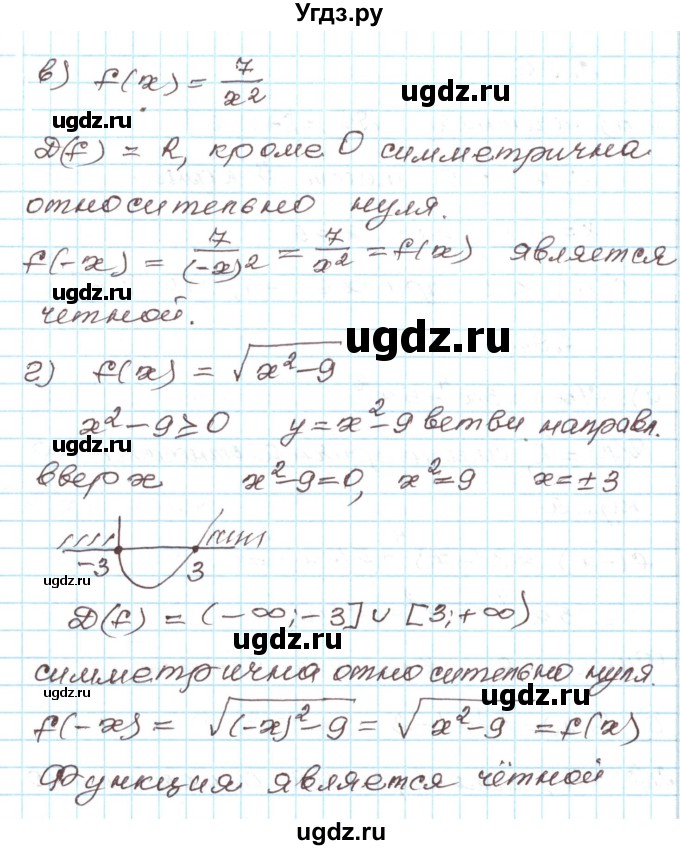 Угдз.ру
в) f(x) = 7/x²
ugdz.ru
ugdz.ru
D(f) = R, кроме 0 симметрична
относительно нуля.
f(-x) = 7/(-x)² = 7/x² = f(x) является
ugdz.ru
ugdz.ru
четной.
ugdz.ru
г) f(x) = √(x²-9)
x²-9≥0 y=x²-9 ветви направл.
ugdz.ru
вверх x²-9=0, x²=9 x=±3
-3 3
ugdz.ru
ugdz.ru
D(f) = (-∞;-3]∪[3;+∞)
ugdz.ru
симметрична относительно нуля.
ugdz.ru
ugdz.ru
f(-x) = √((-x)²-9) = √(x²-9) = f(x)
ugdz.ru
Функция является чётной
ugdz.ru